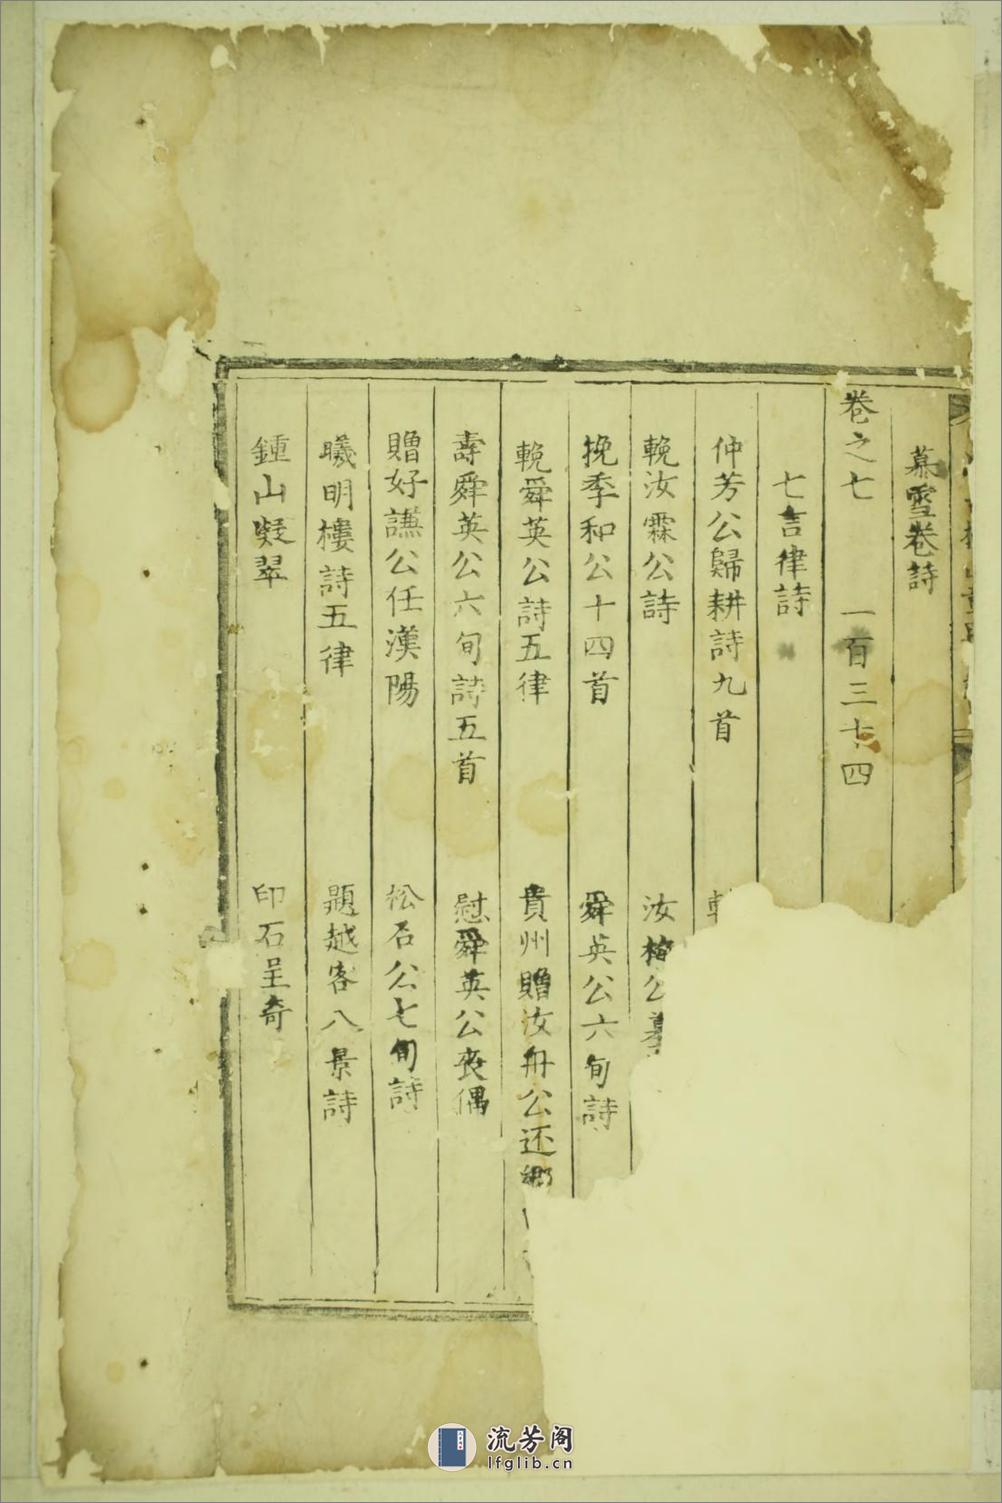 慕雪卷詩
卷之七 一百三十四
七言律詩
仲芳公歸耕詩九首
輓汝霖公詩 汝梅公
挽季和公十四首 舜英公六旬詩
輓舜英公詩五律 貴州贈汝舟公还鄉
壽舜英公六旬詩五首 慰舜英公丧偶
贈好讌公任漢陽 松石公七旬詩
曦明樓詩五律 題越客八景詩
鍾山凝翠 印石呈奇
流芳阁
lfglib.cn